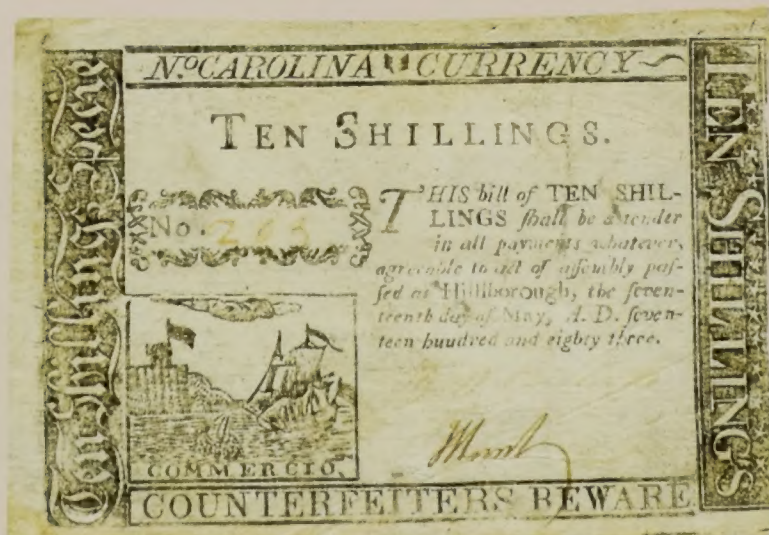 Ten Shillings. Specie
No CAROLINA CURRENCY
TEN SHILLINGS.
No. 203
THIS bill of TEN SHIL-
LINGS ſhall be a tender
in all payments whatever,
agreeable to act of aſſembly paſ-
ſed at Hillſborough, the ſeven-
teenth day of May, A. D. ſeven-
teen huudred and eighty three.
COMMERCIO.
COUNTERFEITERS BEWARE
TEN SHILLINGS